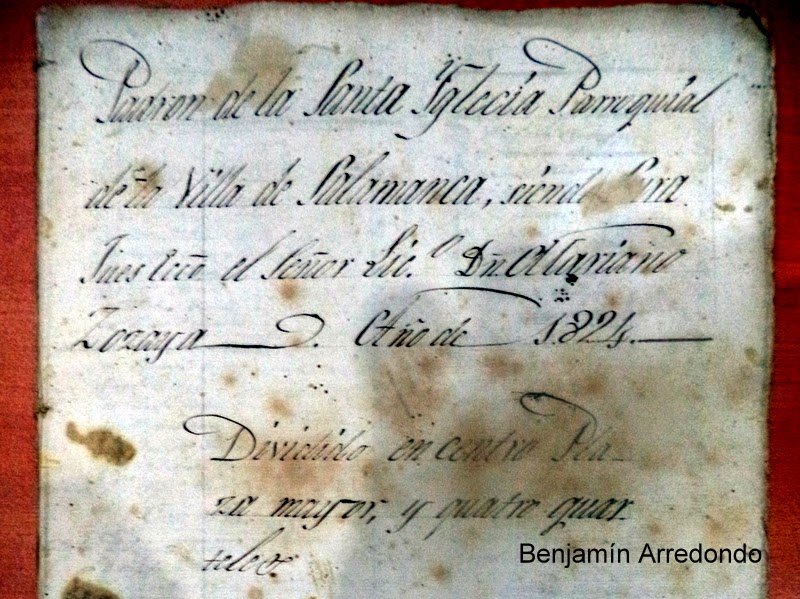 Padron de la Santa Yglecia Parroquial
de la Villa de Salamanca, siendo Cura
Jues Ecco el Señor Lic.º Dn Mariano
Zozaya. Año de 1824.
Dividido en centro Pla-
za mayor, y quatro quar
teles.
Benjamín Arredondo